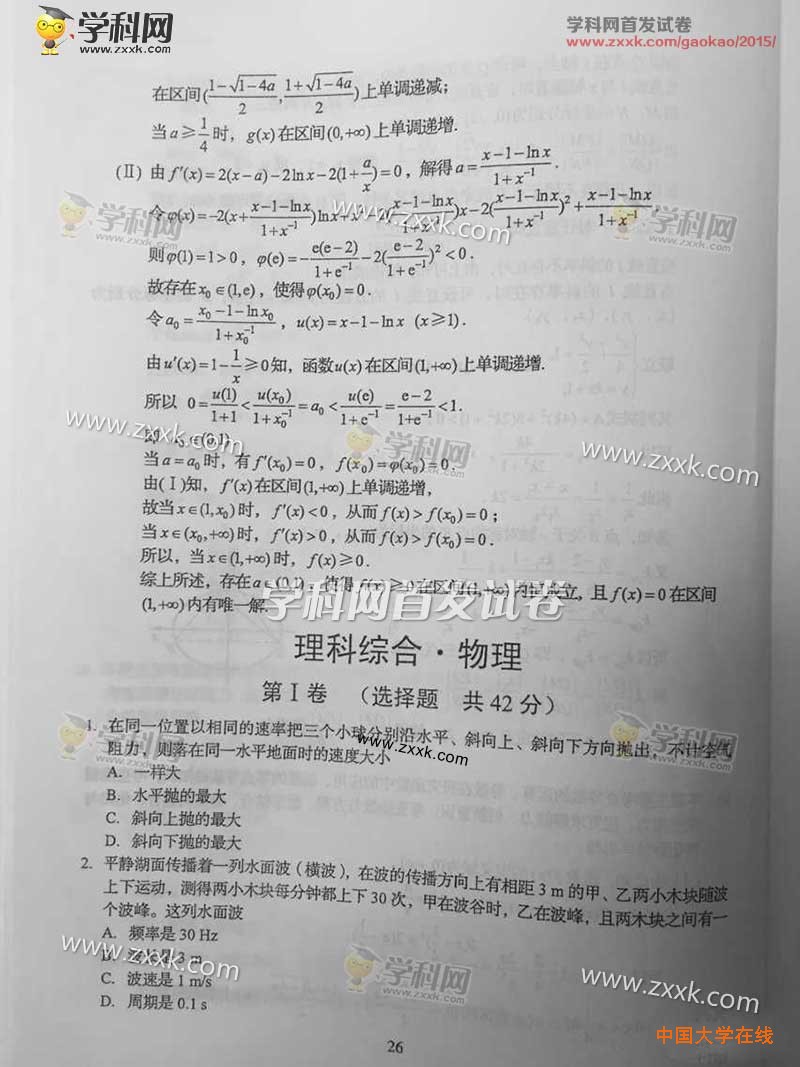 学科网
www.zxxk.com
学科网首发试卷
www.zxxk.com/gaokao/2015/
在区间(\frac{1-\sqrt{1-4a}}{2},\frac{1+\sqrt{1-4a}}{2})上单调递减；
当a≥\frac{1}{4}时，g(x)在区间(0,+∞)上单调递增.
(Ⅱ) 由f′(x)=2(x-a)-2lnx-2(1+\frac{a}{x})=0，解得a=\frac{x-1-lnx}{1+x^{-1}}.
令φ(x)=-2(x+\frac{x-1-lnx}{1+x^{-1}})lnx+x²-2(\frac{x-1-lnx}{1+x^{-1}})x-2(\frac{x-1-lnx}{1+x^{-1}})²+\frac{x-1-lnx}{1+x^{-1}},
则φ(1)=1>0，φ(e)=-\frac{e(e-2)}{1+e^{-1}}-2(\frac{e-2}{1+e^{-1}})²<0.
故存在x₀∈(1,e)，使得φ(x₀)=0.
令a₀=\frac{x₀-1-lnx₀}{1+x₀^{-1}}，u(x)=x-1-lnx (x≥1).
由u′(x)=1-\frac{1}{x}≥0知，函数u(x)在区间(1,+∞)上单调递增.
所以 0=\frac{u(1)}{1+1}<\frac{u(x₀)}{1+x₀^{-1}}=a₀<\frac{u(e)}{1+e^{-1}}=\frac{e-2}{1+e^{-1}}<1.
∈(0,1).
当a=a₀时，有f′(x₀)=0，f(x₀)=φ(x₀)=0.
由(Ⅰ)知，f′(x)在区间(1,+∞)上单调递增，
故当x∈(1,x₀)时，f′(x)<0，从而f(x)>f(x₀)=0；
当x∈(x₀,+∞)时，f′(x)>0，从而f(x)>f(x₀)=0.
所以，当x∈(1,+∞)时，f(x)≥0.
综上所述，存在a∈(0,1)，使得f(x)≥0在区间(1,+∞)内恒成立，且f(x)=0在区间
(1,+∞)内有唯一解.
学科网首发试卷
理科综合·物理
第Ⅰ卷 （选择题 共42分）
1. 在同一位置以相同的速率把三个小球分别沿水平、斜向上、斜向下方向抛出，不计空气
阻力，则落在同一水平地面时的速度大小
A. 一样大
B. 水平抛的最大
C. 斜向上抛的最大
D. 斜向下抛的最大
2. 平静湖面传播着一列水面波（横波），在波的传播方向上有相距3 m的甲、乙两小木块随波
上下运动，测得两小木块每分钟都上下30次，甲在波谷时，乙在波峰，且两木块之间有一
个波峰。这列水面波
A. 频率是30 Hz
B. 波长是3 m
C. 波速是1 m/s
D. 周期是0.1 s
26
中国大学在线